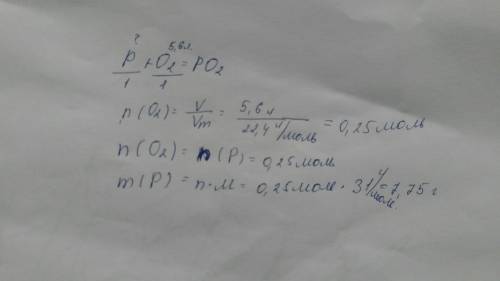 ? 5,6л.
P + O₂ = PO₂
1 1
n(O₂) = V/Vm = 5,6л/22,4 л/моль = 0,25моль
n(O₂) = n(P) = 0,25моль
m(P) = n·M = 0,25моль · 31 г/моль = 7,75 г